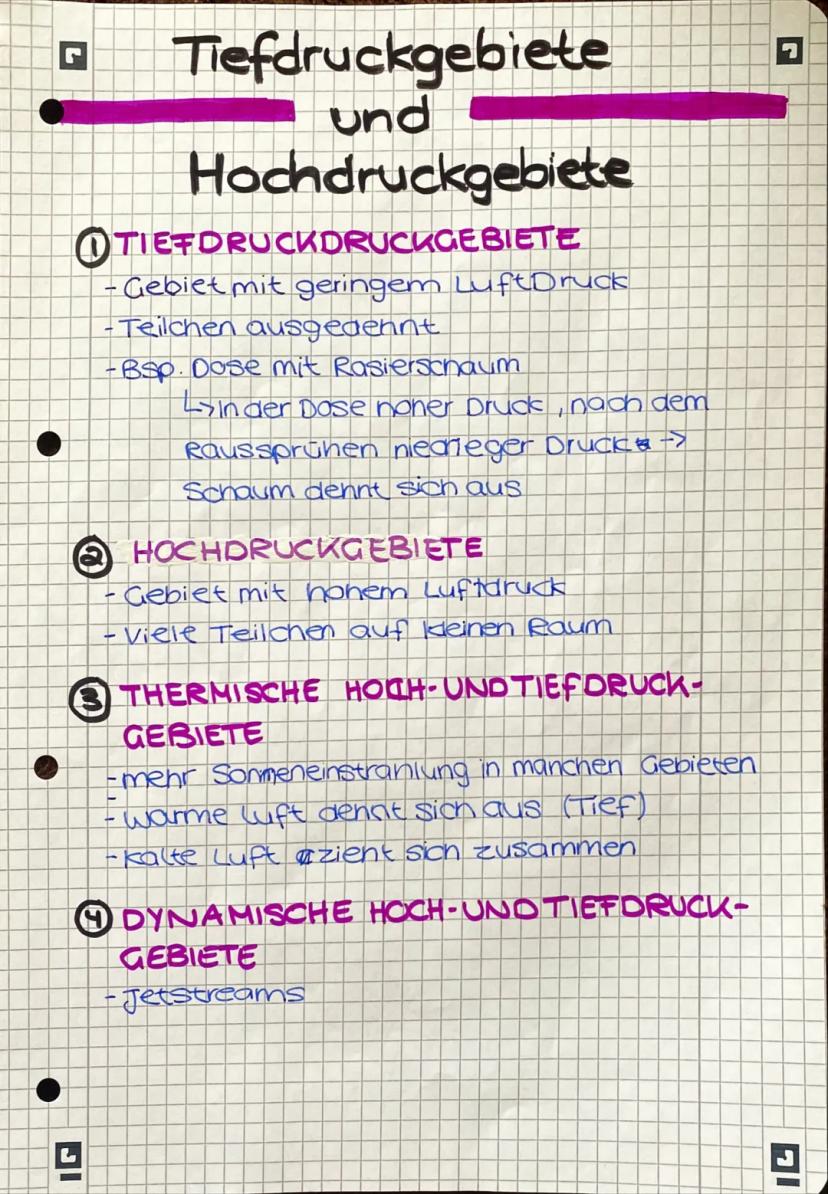 Tiefdruckgebiete
und
Hochdruckgebiete
① TIEFDRUCKDRUCKGEBIETE
- Gebiet mit geringem LuftDruck
- Teilchen ausgedehnt
- Bsp. Dose mit Rasierschaum
↳ In der Dose hoher Druck, nach dem
Raussprühen niedrieger Druck ->
Schaum dehnt sich aus
② HOCHDRUCKGEBIETE
- Gebiet mit hohem Luftdruck
- Viele Teilchen auf kleinen Raum
③ THERMISCHE HOCH-UND TIEFDRUCK-
GEBIETE
- mehr Sonneneinstrahlung in manchen Gebieten
- warme Luft dehnt sich aus (Tief)
- kalte Luft zieht sich zusammen
④ DYNAMISCHE HOCH-UND TIEFDRUCK-
GEBIETE
- Jetstreams